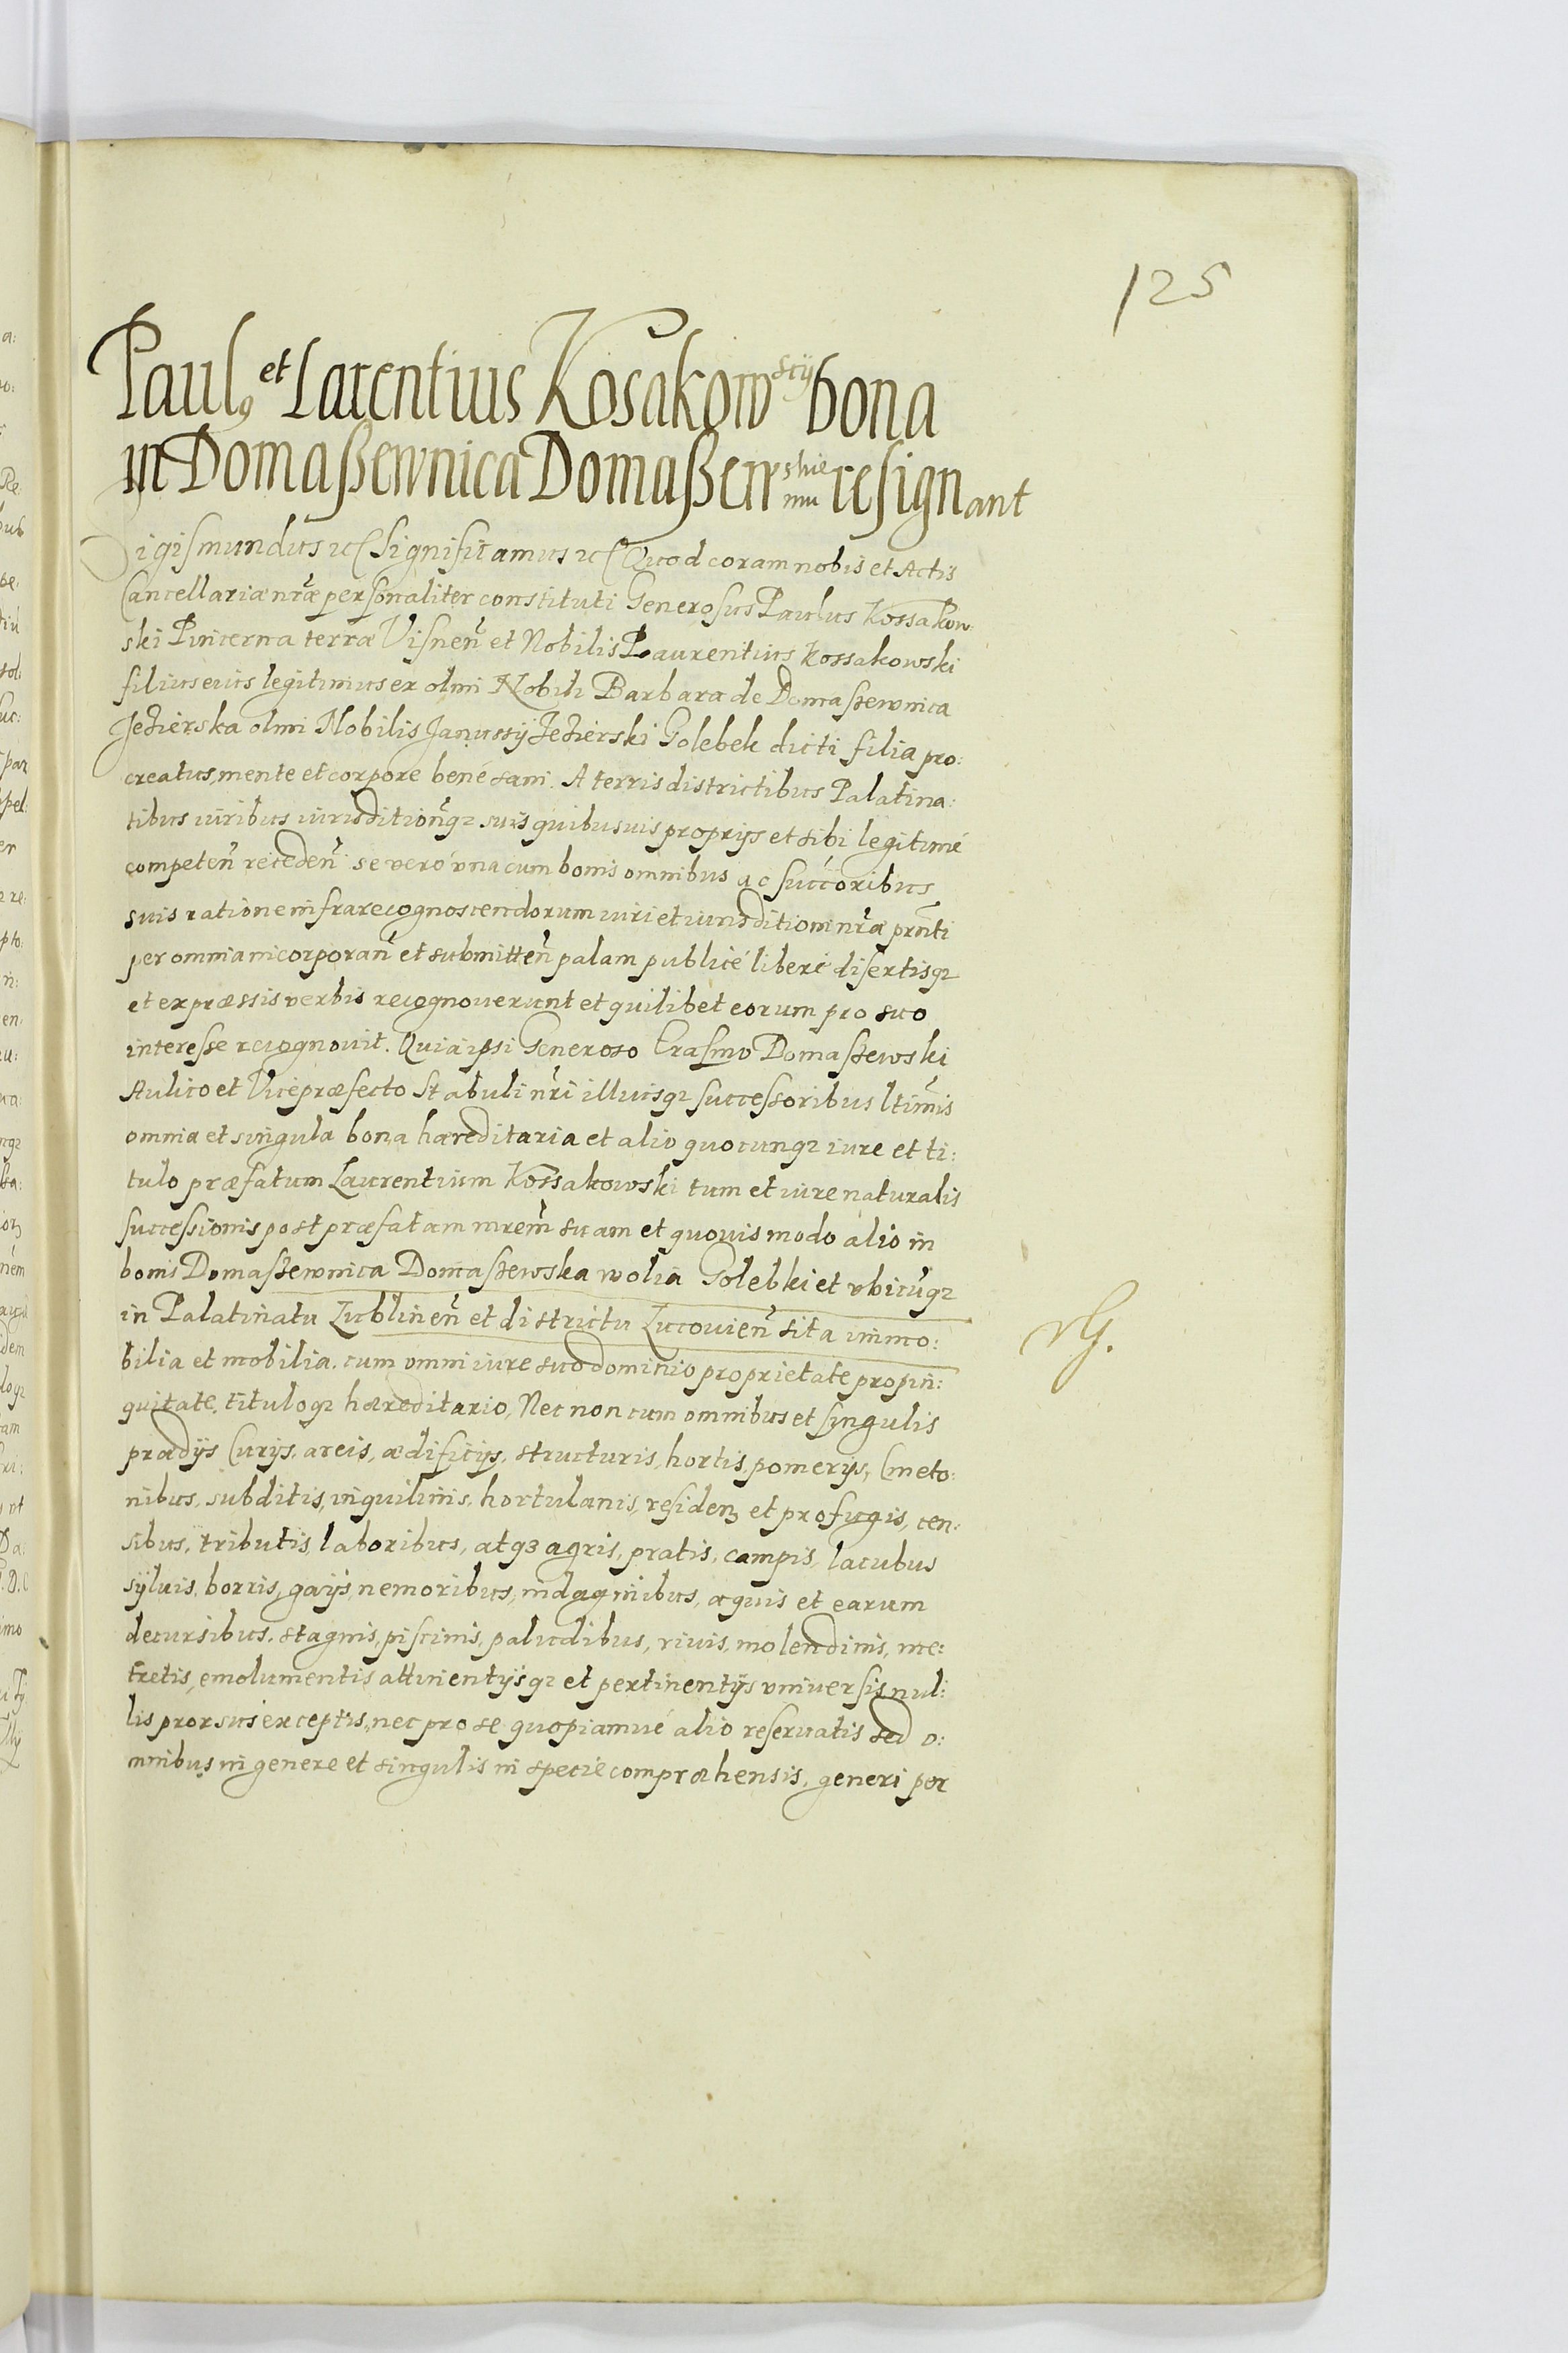 125
Paulꝯ et Larentius Kosakowscÿ bona
in Domaßewnica Domaßewskiemu resignant
Sigismundus ꝛc Significamus ꝛc Quod coram nobis et Actis
Cancellariæ nr̃æ personaliter constituti Generosus Paulus Kossakow
ski Pincerna terræ Visnen̄ et Nobilis Laurentius Kossakowski
filius eius legitimus ex olim Nobili Barbara de Domaszewnica
Jezierska olim Nobilis Janussÿ Jezierski Golebek dicti filia pro:
creatus, mente et corpore bené sani. A terris districtibus Palatina:
tibus iuribus iurisditioñqꝫ suis quibusuis proprijs et sibi legitimé
competeñ recedeñ se veró vna cum bonis omnibus ac succoribus
suis ratione infra recognoscendorum iuri et iurisditioni nr̃æ prñti
per omnia incorporañ et submitteñ palam publicé liberé disertisqꝫ
et expræssis verbis recognouerunt et quilibet eorum pro suo
interesse recognouit. Quia ipsi Generoso Erasmo Domaszewski
Aulico et Vicepræfecto Stabuli nr̃i illiusqꝫ successoribus ltimis
omnia et singula bona hæreditaria et alio quocunqꝫ iure et ti:
tulo præfatum Laurentium Kossakowski tum et iure naturalis
successionis post præfatam mrem̃ suam et quouis modo alio in
bonis Domaszewnica Domaszewska wolia Golebki et vbicũqꝫ
in Palatinatu Lublineñ et districtu Lucouieñ sita immo:
bilia et mobilia. cum omni iure suo dominio proprietate propin:
quitate. tituloqꝫ hæreditario, Nec non cum omnibus et singulis
prædijs Curijs, areis, ædificijs, structuris, hortis, pomerijs, Cmeto:
nibus, subditis, inquilinis, hortulanis, residenꝫ et profugis, cen:
sibus, tributis, laboribus, atqꝫ agris, pratis, campis, lacubus
syluis, borris, gays, nemoribus, indaginibus, aquis et earum
decursibus, stagnis, piscinis, paludibus, riuis, molendinis, me:
tretis, emolumentis attinentijsqꝫ et pertinentijs vniuersis nul:
lis prorsus exceptis, nec pro se quopiamué alio reseruatis sed o:
mnibus in genere et singulis in specie compræhensis, generi per